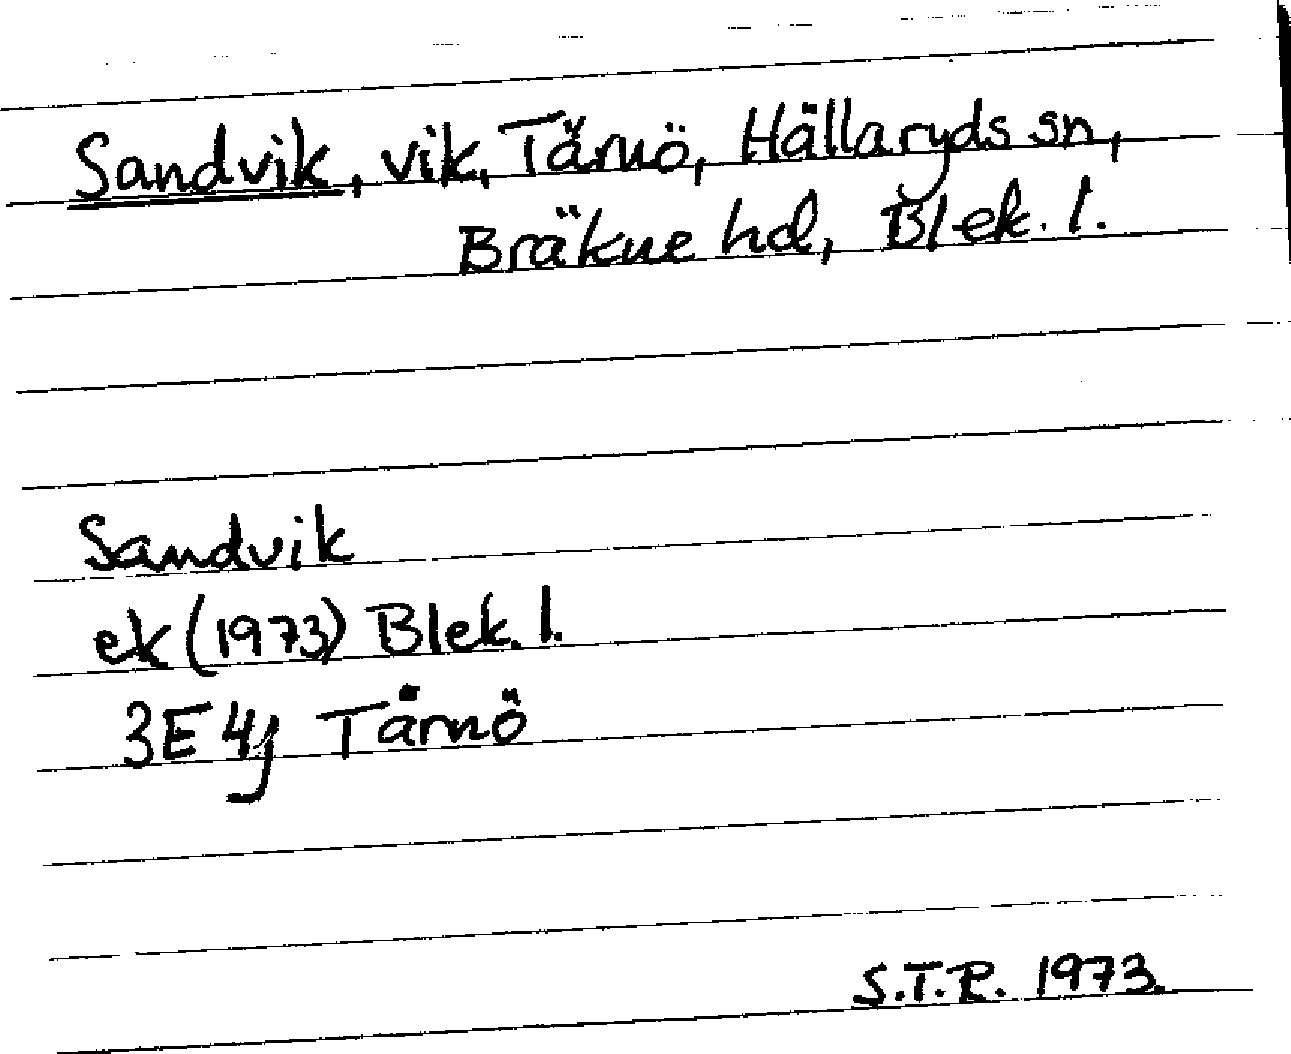 Sandvik, vik, Tärnö, Hällaryds sn,
Bräkne hd, Blek. l.
Sandvik
ek (1973) Blek. l.
3E 4j Tärnö
S.T.R. 1973.